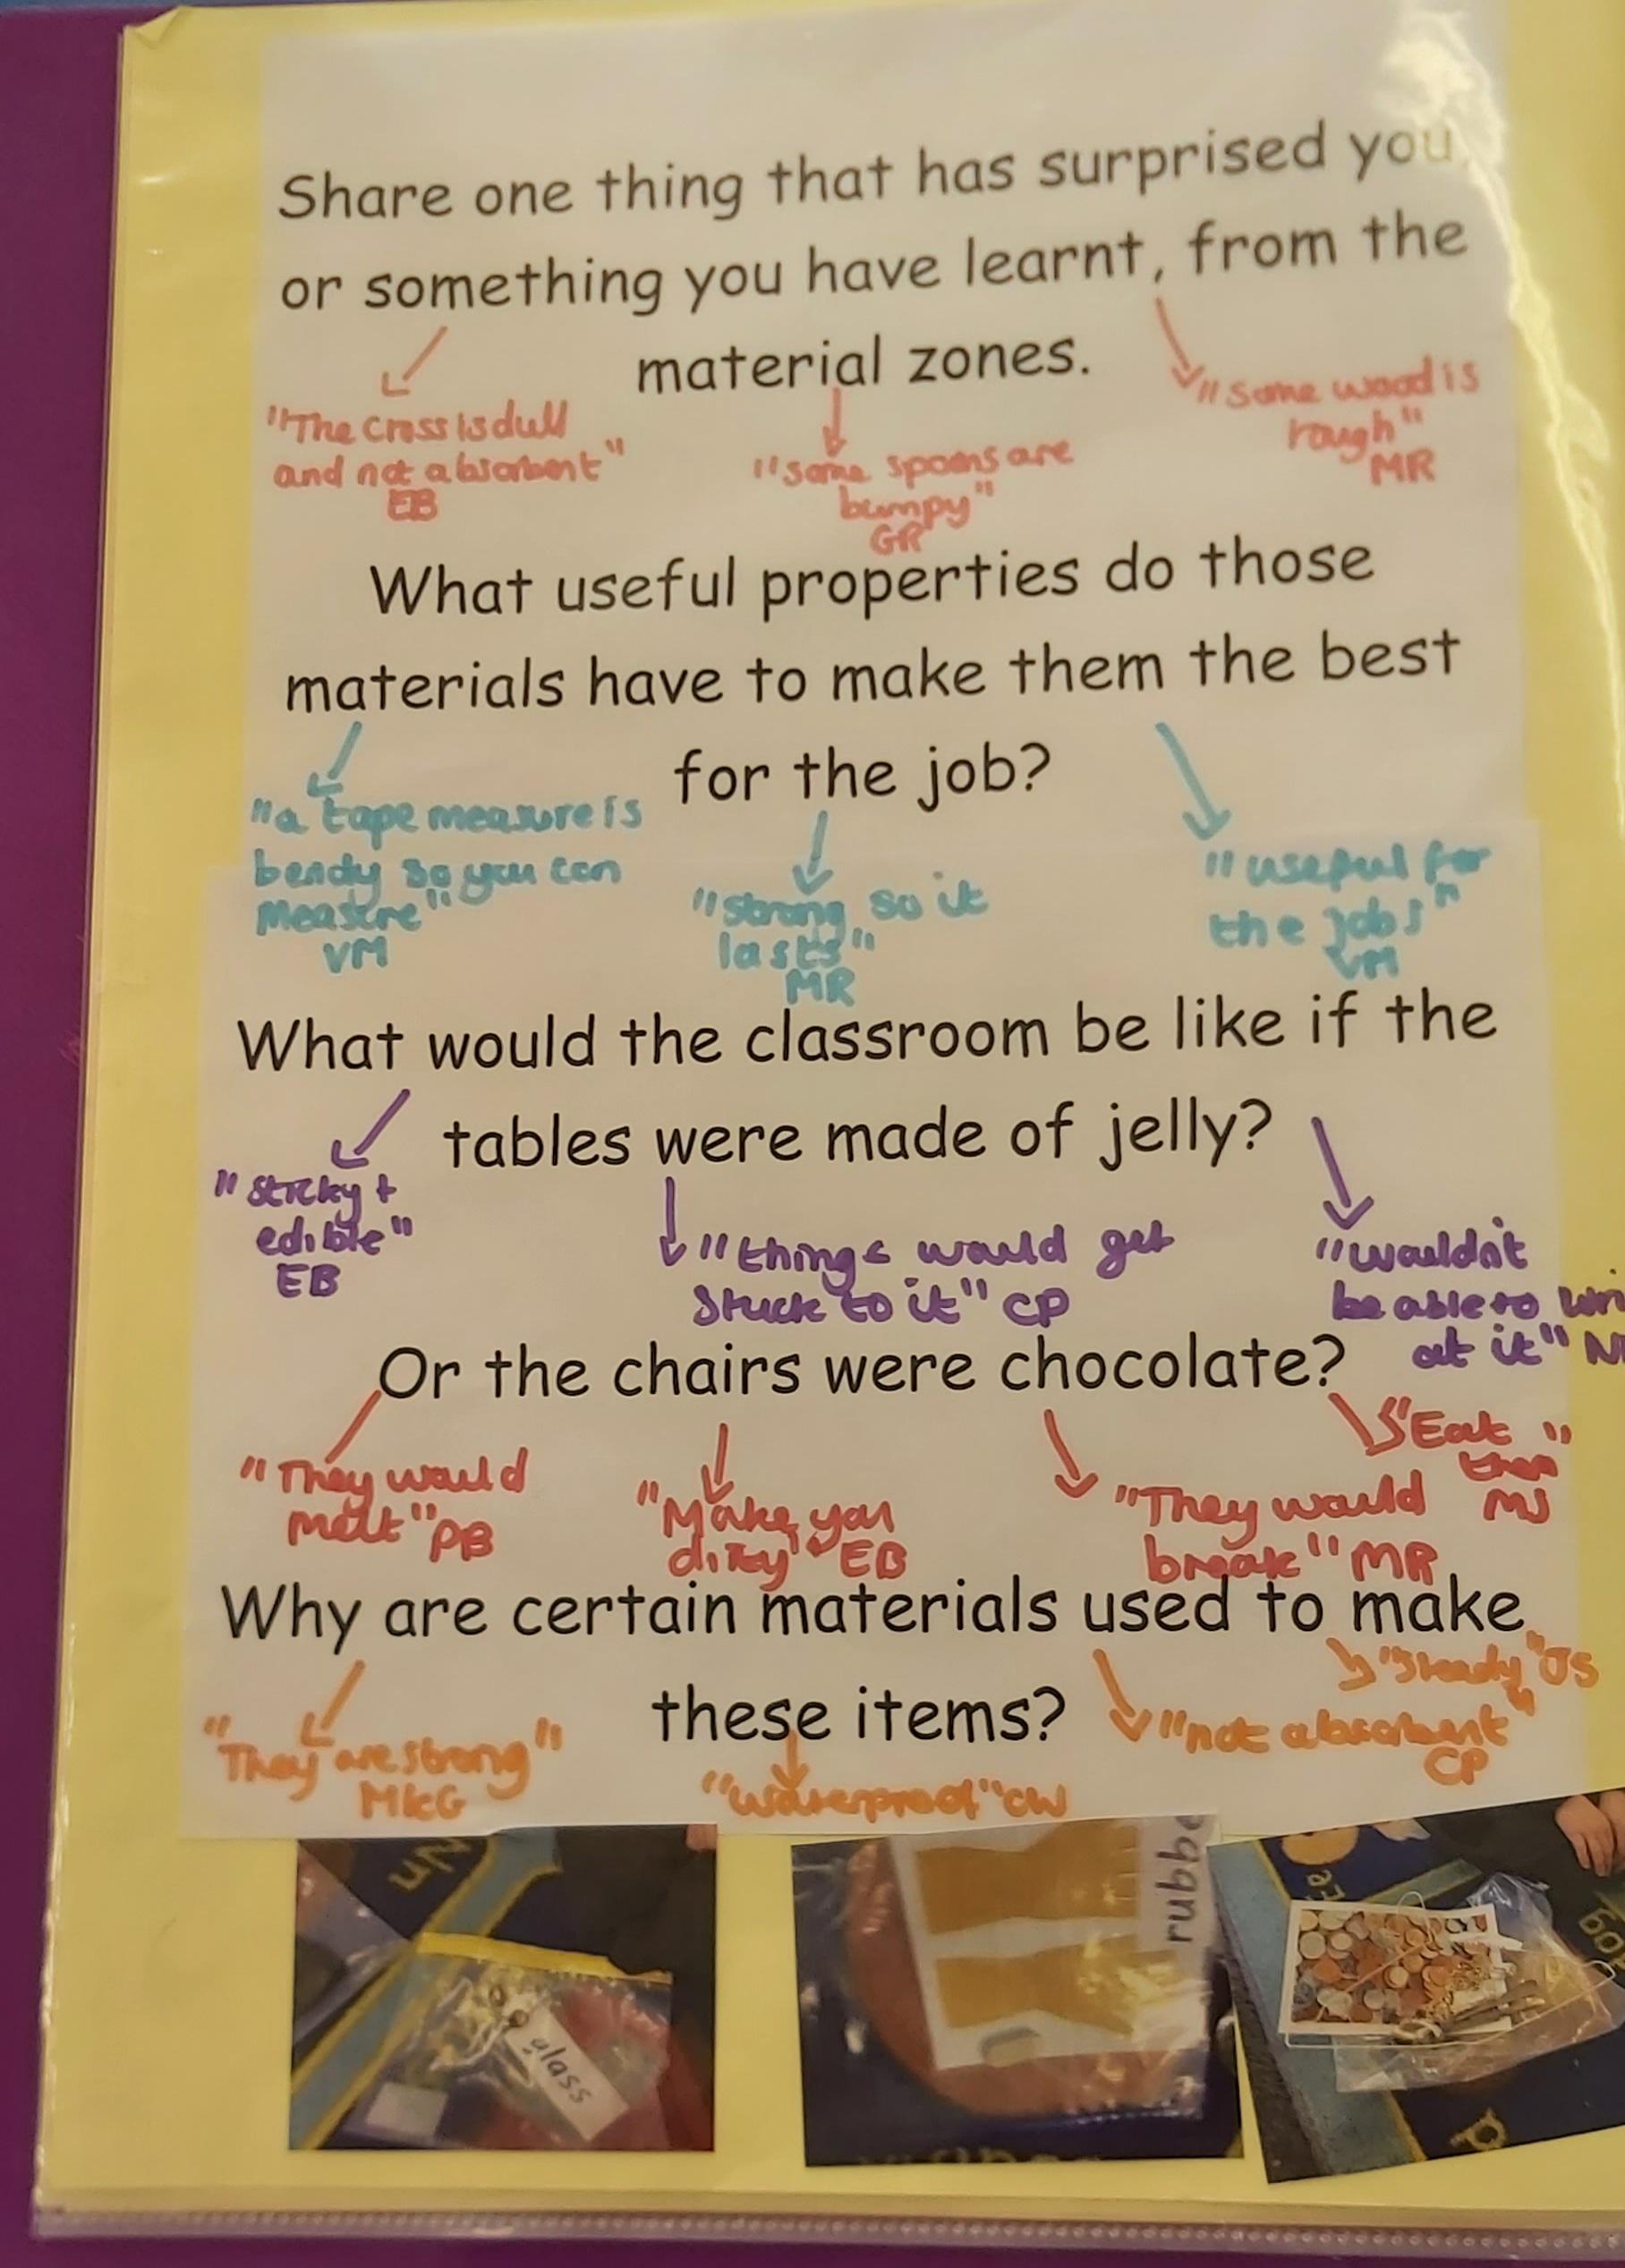 Share one thing that has surprised you,
or something you have learnt, from the
material zones.
"The cross is dull
and not absorbent"
EB
"some spoons are
bumpy"
GR
"Some wood is
rough"
MR
What useful properties do those
materials have to make them the best
for the job?
"a tape measure is
bendy so you can
measure"
VM
"strong so it
lasts"
MR
"useful for
the jobs"
VM
What would the classroom be like if the
tables were made of jelly?
"sticky +
edible"
EB
"things would get
stuck to it" CP
"Wouldn't
be able to wri
at it" N
Or the chairs were chocolate?
"They would
melt" PB
"Make you
dirty" EB
"They would
break" MR
"Eat
them"
MJ
Why are certain materials used to make
these items?
"They are strong"
MKG
"Waterproof" CW
"not absorbent"
CP
"Steady" JS
glass
rubbe